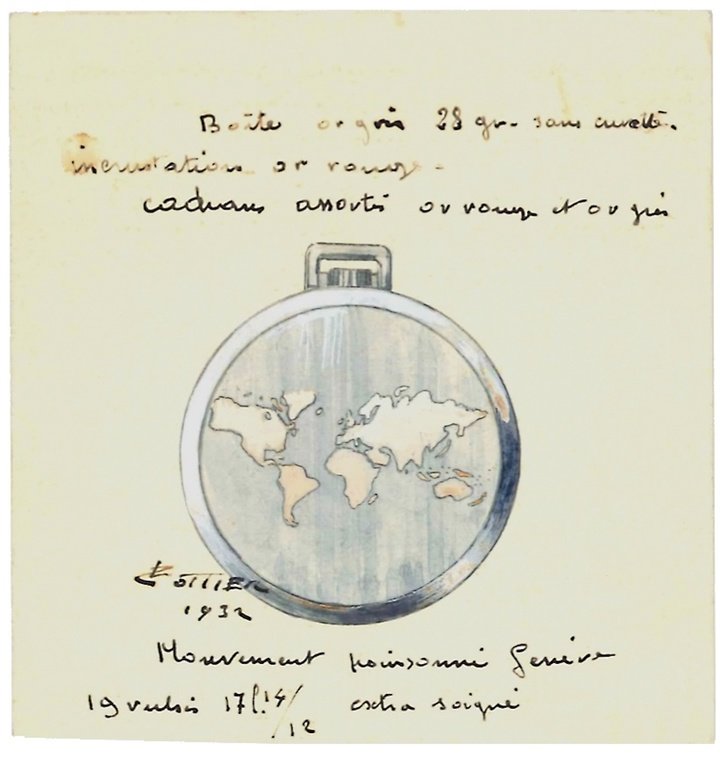 Boîte or gris 28 gr. sans cuvette.
incrustation or rouge.
cadrans assortis or rouge et or gris
COTTIER
1932
Mouvement poinsonné Genève
19 rubis 17l. 14/12 extra soigné